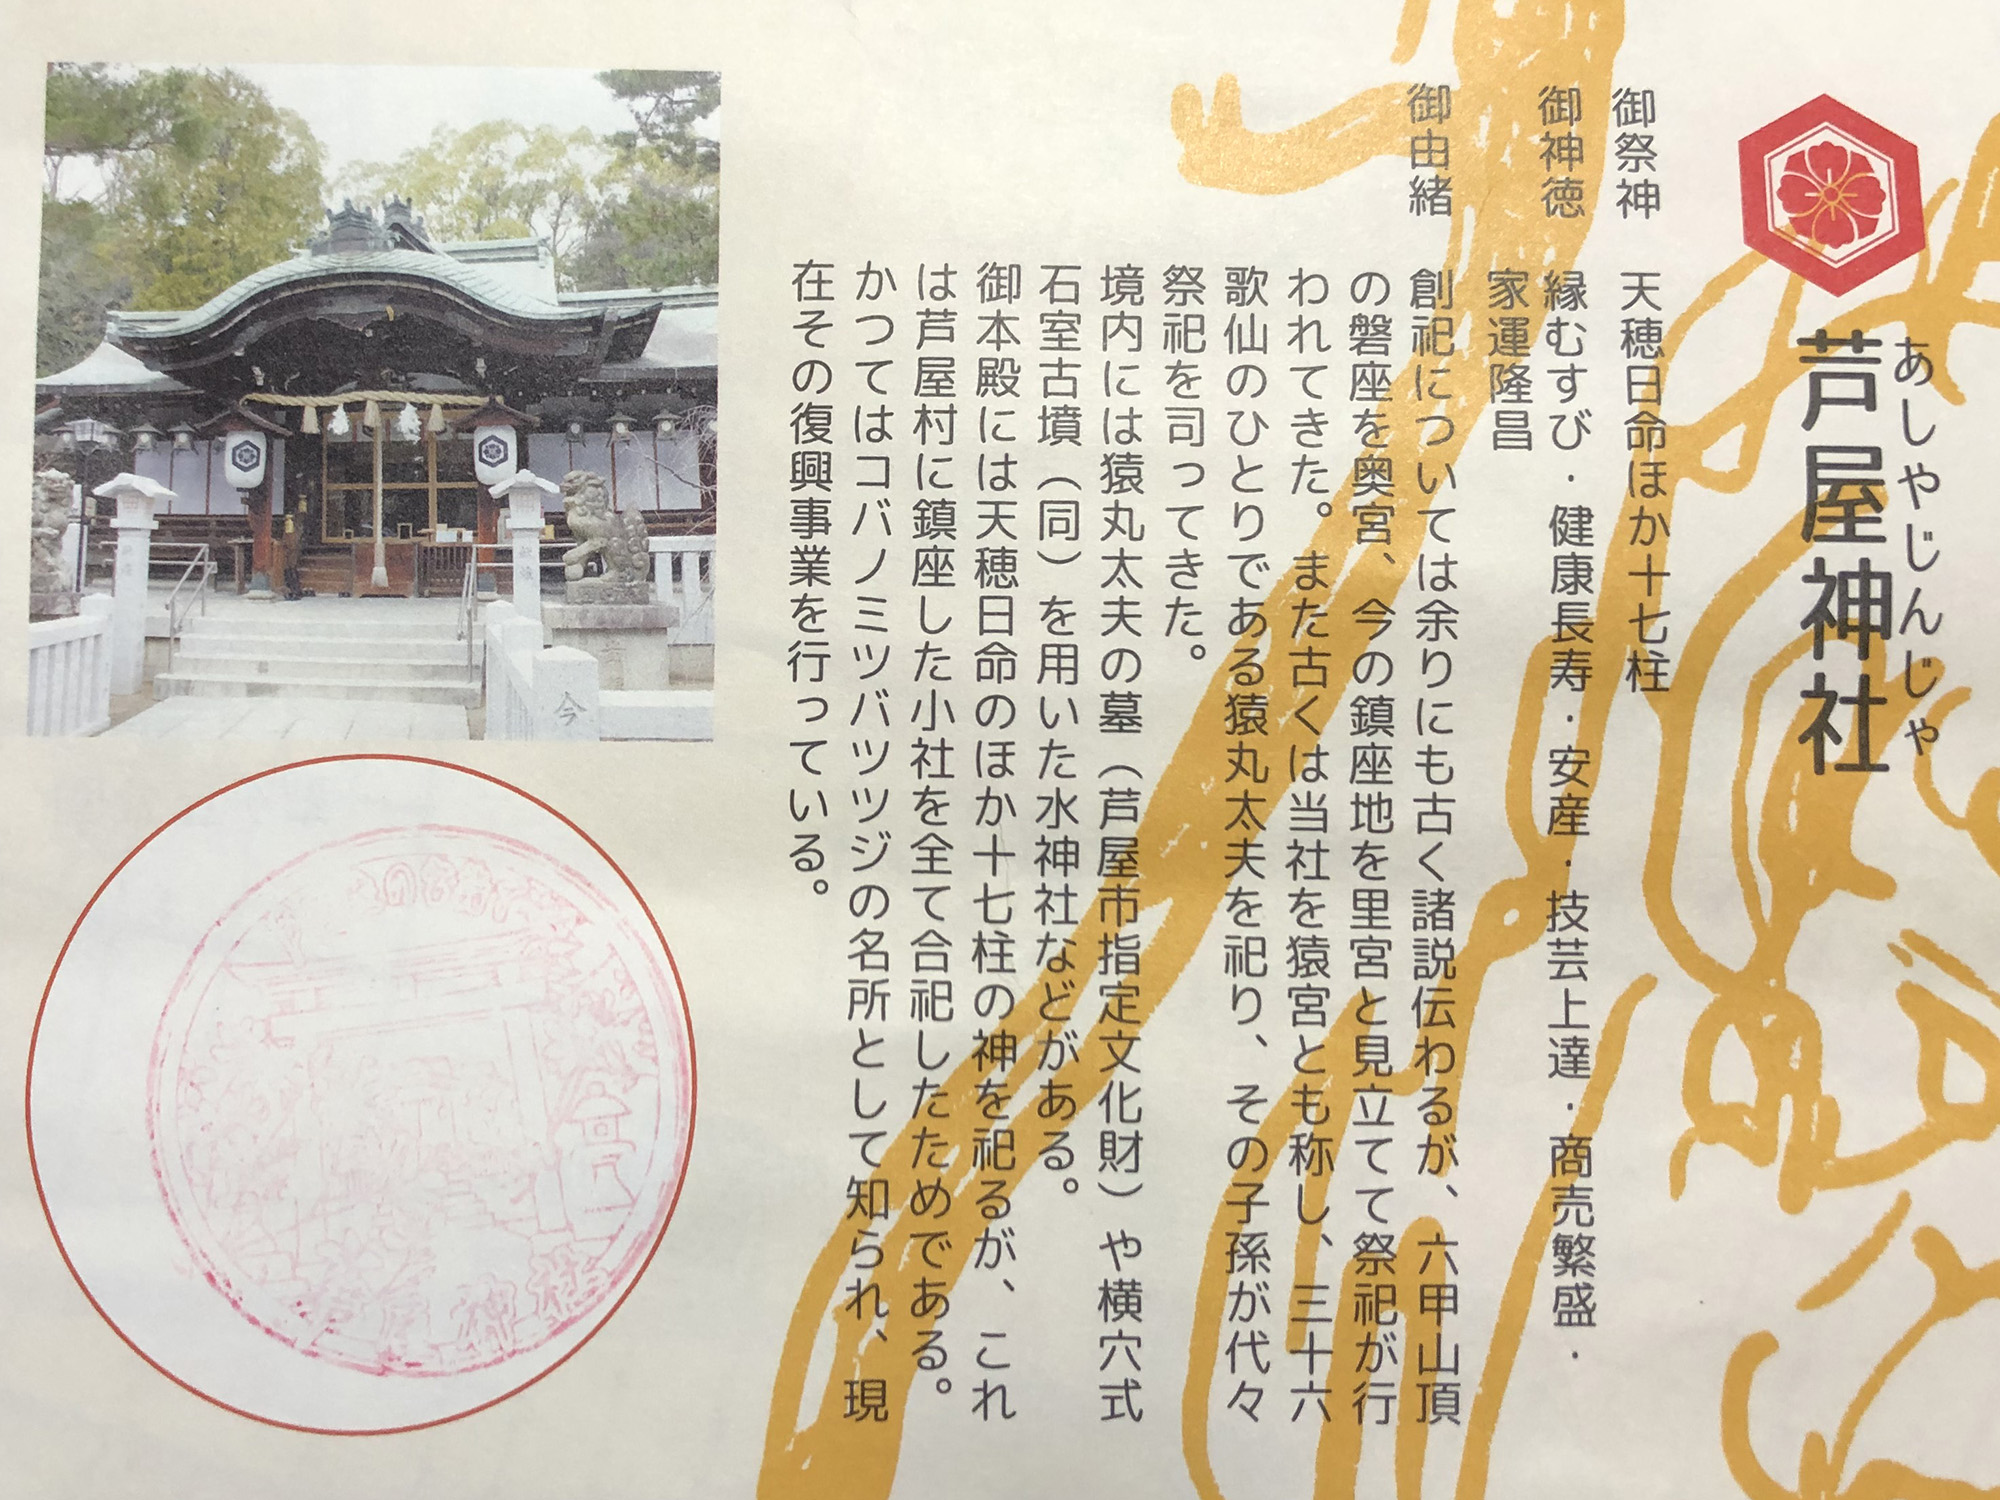 あしやじんじゃ
芦屋神社
御祭神 天穂日命ほか十七柱
御神徳 縁むすび・健康長寿・安産・技芸上達・商売繁盛・
家運隆昌
御由緒 創祀については余りにも古く諸説伝わるが、六甲山頂
の磐座を奥宮、今の鎮座地を里宮と見立てて祭祀が行
われてきた。また古くは当社を猿宮とも称し、三十六
歌仙のひとりである猿丸太夫を祀り、その子孫が代々
祭祀を司ってきた。
境内には猿丸太夫の墓（芦屋市指定文化財）や横穴式
石室古墳（同）を用いた水神社などがある。
御本殿には天穂日命のほか十七柱の神を祀るが、これ
は芦屋村に鎮座した小社を全て合祀したためである。
かつてはコバノミツバツツジの名所として知られ、現
在その復興事業を行っている。
芦屋神社